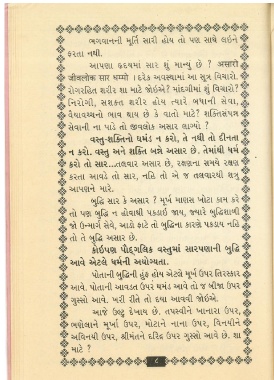 ભગવાનની મૂર્તિ સારી હોય તો પણ સાથે લઇને
ફરતા નથી.
આપણા હૃદયમાં સાર શું માન્યું છે ? અસારો
જીવલોક સાર ધમ્મો । દરેક અવસ્થામાં આ સૂત્ર વિચારો.
રોગરહિત શરીર શા માટે જોઈએ? માંદગીમાં શું વિચારો?
નિરોગી, સશક્ત શરીર હોય ત્યારે બધાની સેવા,
વૈયાવચ્ચનો ભાવ થાય છે કે વાતો માટે? શક્તિસંપન્ન
સેવાની ના પાડે તો જીવલોક અસાર લાગ્યો ?
વસ્તુ-શક્તિનો ઘમંડ ન કરો, તે નથી તો દીનતા
ન કરો. વસ્તુ અને શક્તિ બન્ને અસાર છે. તેમાંથી ધર્મ
કરો તો સાર...તલવાર અસાર છે, રક્ષણના સમયે રક્ષણ
કરતા આવડે તો સાર, નહિ તો એ જ તલવારથી શત્રુ
આપણને મારે.
બુદ્ધિ સાર કે અસાર ? મૂર્ખ માણસ ખોટા કામ કરે
તો પણ બુદ્ધિ ન હોવાથી પકડાઈ જાય, જ્યારે બુદ્ધિશાળી
જો ઉન્માર્ગ સેવે, આડો ફાટે તો બુદ્ધિના કારણે પકડાય નહિ
તો તે બુદ્ધિ અસાર છે.
કોઈપણ પૌદ્ગલિક વસ્તુમાં સારપણાની બુદ્ધિ
આવે એટલે ધર્મની અયોગ્યતા.
પોતાની બુદ્ધિની હુંફ હોય એટલે મૂર્ખ ઉપર તિરસ્કાર
આવે. પોતાની આવડત ઉપર ઘમંડ આવે તો જ બીજા ઉપર
ગુસ્સો આવે. ખરી રીતે તો દયા આવવી જોઈએ.
આજે ઉલ્ટું દેખાય છે. તપસ્વીને ખાનારા ઉપર,
ભણેલાને મૂર્ખા ઉપર, મોટાને નાના ઉપર, વિનયીને
અવિનયી ઉપર, શ્રીમંતને દરિદ્ર ઉપર ગુસ્સો આવે છે. શા
માટે ?